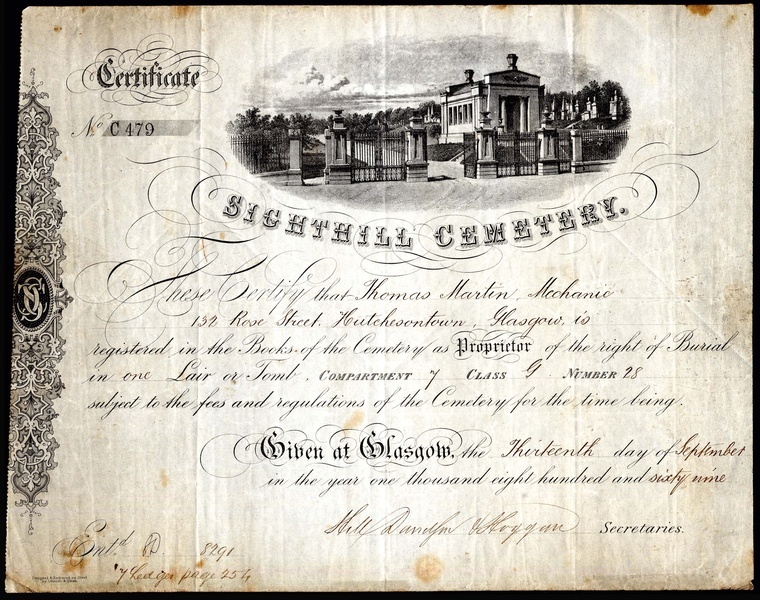 Certificate
No. C 479
SIGHTHILL CEMETERY.
These Certify that Thomas Martin, Mechanic
132 Rose Street. Hutchesontown, Glasgow, is
registered in the Books of the Cemetery as Proprietor of the right of Burial
in one Lair or Tomb, COMPARTMENT 7 CLASS G NUMBER 28
subject to the fees and regulations of the Cemetery for the time being.
Given at Glasgow, the Thirteenth day of September
in the year one thousand eight hundred and sixty nine
Hill Davidson & Hoggan Secretaries.
Entd. 8291
7 Ledger page 254